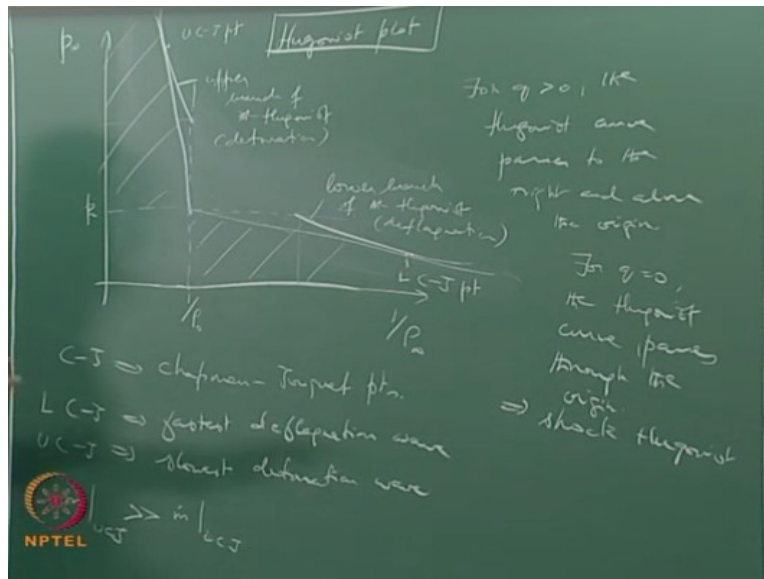 Hugoniot plot
U C-J pt
upper
branch of
Hugoniot
(detonation)
lower branch
of Hugoniot
(deflagration)
L C-J pt
1/ρ₀
1/ρ∞
For q > 0, the
Hugoniot curve
passes to the
right and above
the origin.
For q = 0,
the Hugoniot
curve passes
through the
origin.
⇒ shock Hugoniot
C-J ⇒ Chapman-Jouguet pts.
L C-J ⇒ fastest deflagration wave
U C-J ⇒ slowest detonation wave
ṁ|UCJ >> ṁ|LCJ
NPTEL